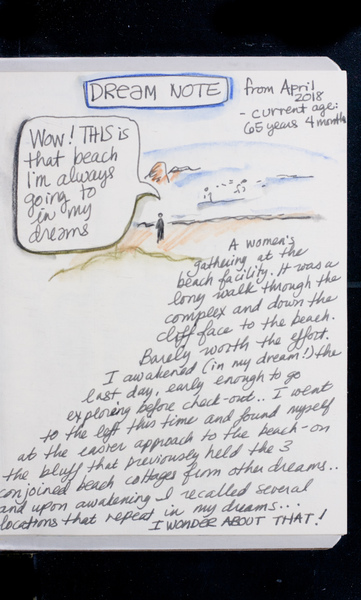 DREAM NOTE
from April
2018
- current age:
65 years 4 months
Wow! THIS is
that beach
I'm always
going to
in my
dreams
A women's
gathering at the
beach facility. It was a
long walk through the
complex and down the
cliff face to the beach.
Barely worth the effort.
I awakened (in my dream!) the
last day, early enough to go
exploring before check-out.. I went
to the left this time and found myself
at the easier approach to the beach - on
the bluff that previously held the 3
conjoined beach cottages from other dreams..
and upon awakening I recalled several
locations that repeat in my dreams...
I WONDER ABOUT THAT!